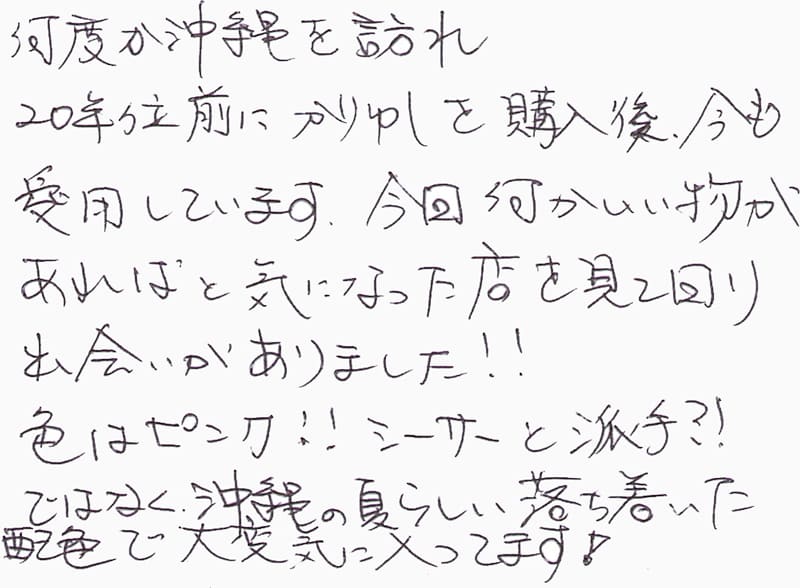 何度か沖縄を訪れ
20年位前にかりゆしを購入後、今も
愛用しています。今回何かいい物が
あればと気になった店を見て回り
出会いがありました!!
色はピンク!!シーサーと派手?!
ではなく、沖縄の夏らしい落ち着いた
配色で大変気に入ってます!